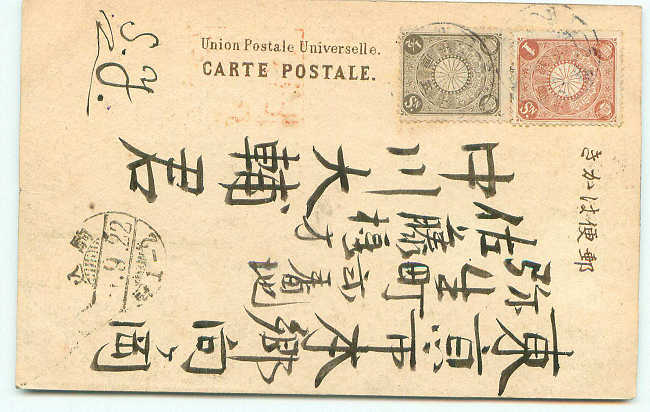 Union Postale Universelle.
CARTE POSTALE.
郵便はかき
東京市本郷向岡
弥生町
番地
佐藤様方
中川大輔君